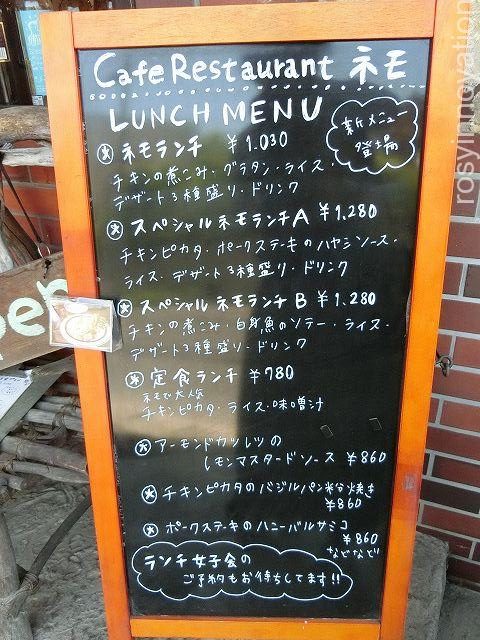 Cafe Restaurant ネモ
LUNCH MENU
新メニュー
登場
ネモランチ ¥1.030
チキンの煮こみ・グラタン・ライス・
デザート3種盛り・ドリンク
スペシャルネモランチA ¥1.280
チキンピカタ・ポークステーキのハヤシソース・
ライス・デザート3種盛り・ドリンク
スペシャルネモランチB ¥1.280
チキンの煮こみ・白身魚のソテー・ライス・
デザート3種盛り・ドリンク
定食ランチ ¥780
ネモで大人気
チキンピカタ・ライス・味噌汁
アーモンドカツレツの
レモンマスタードソース ¥860
チキンピカタのバジルパン粉焼き
¥860
ポークステーキのハニーバルサミコ
¥860
などなど
ランチ女子会の
ご予約もお待ちしてます!!
pen
rosyinnovation